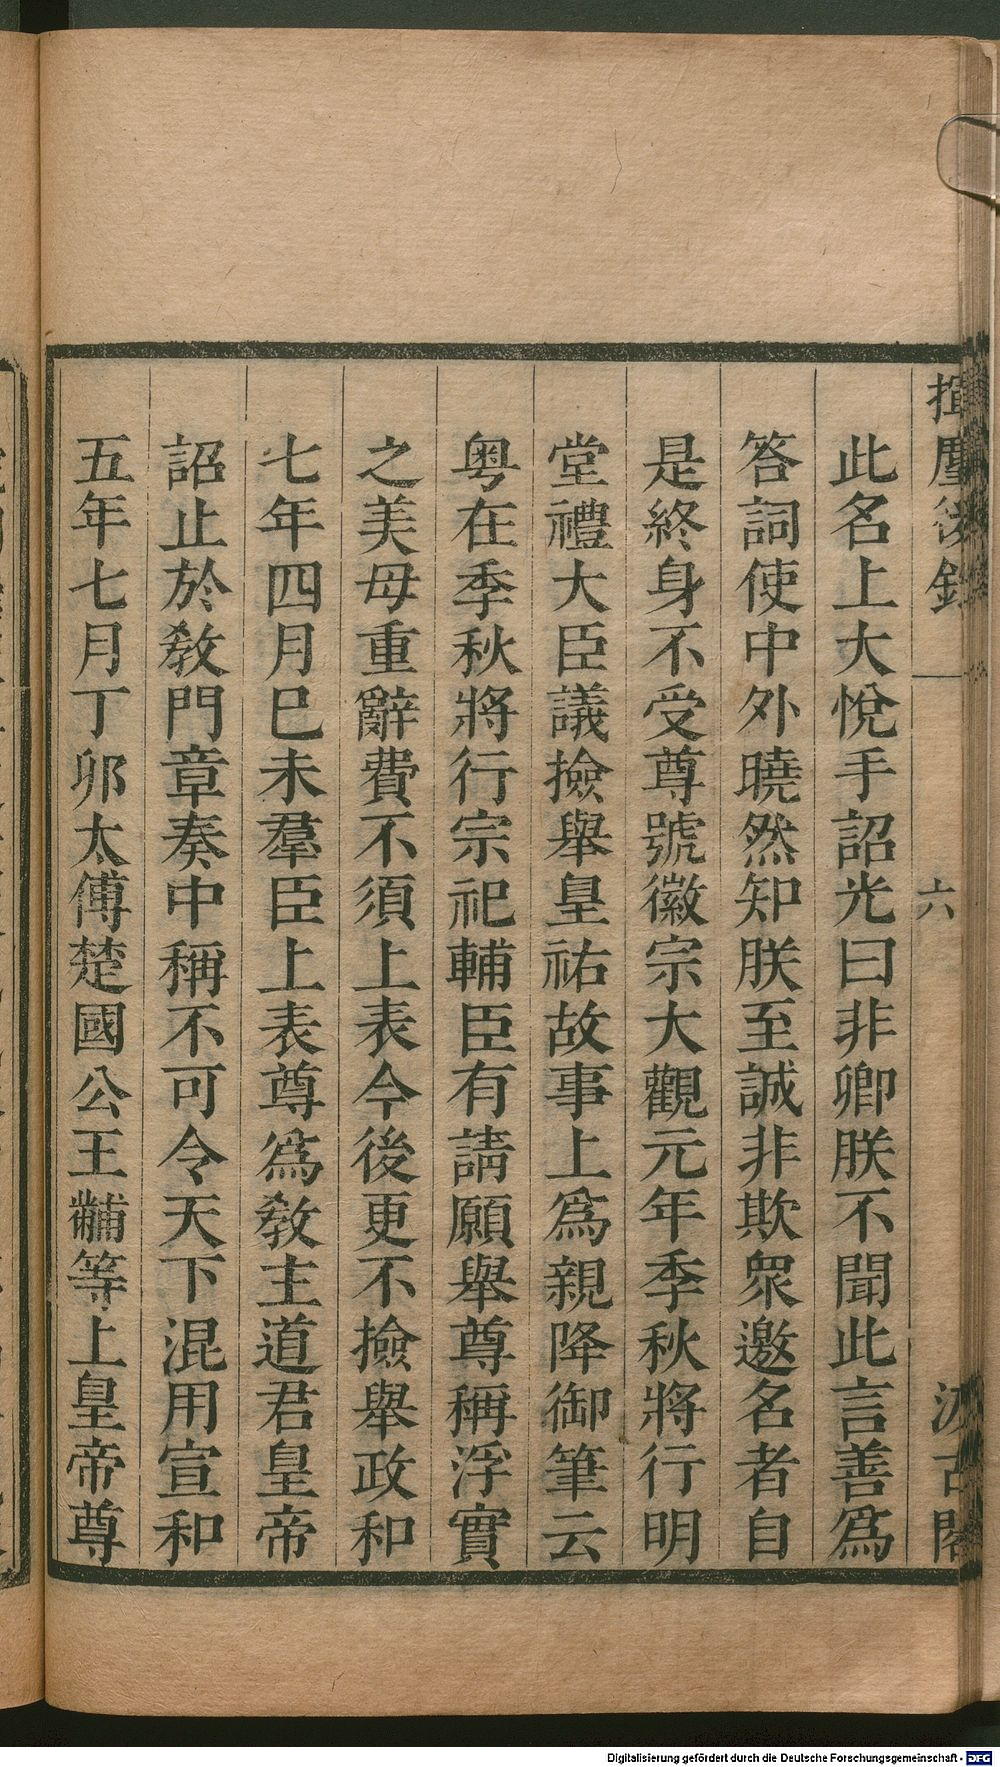 揮麈後錄
六
汲古閣
此名上大悅手詔光曰非卿朕不聞此言善爲
答詞使中外曉然知朕至誠非欺衆邀名者自
是終身不受尊號徽宗大觀元年季秋將行明
堂禮大臣議撿舉皇祐故事上爲親降御筆云
粵在季秋將行宗祀輔臣有請願舉尊稱浮實
之美毋重辭費不須上表今後更不撿舉政和
七年四月巳未羣臣上表尊爲敎主道君皇帝
詔止於敎門章奏中稱不可令天下混用宣和
五年七月丁卯太傅楚國公王黼等上皇帝尊
Digitalisierung gefördert durch die Deutsche Forschungsgemeinschaft - DFG